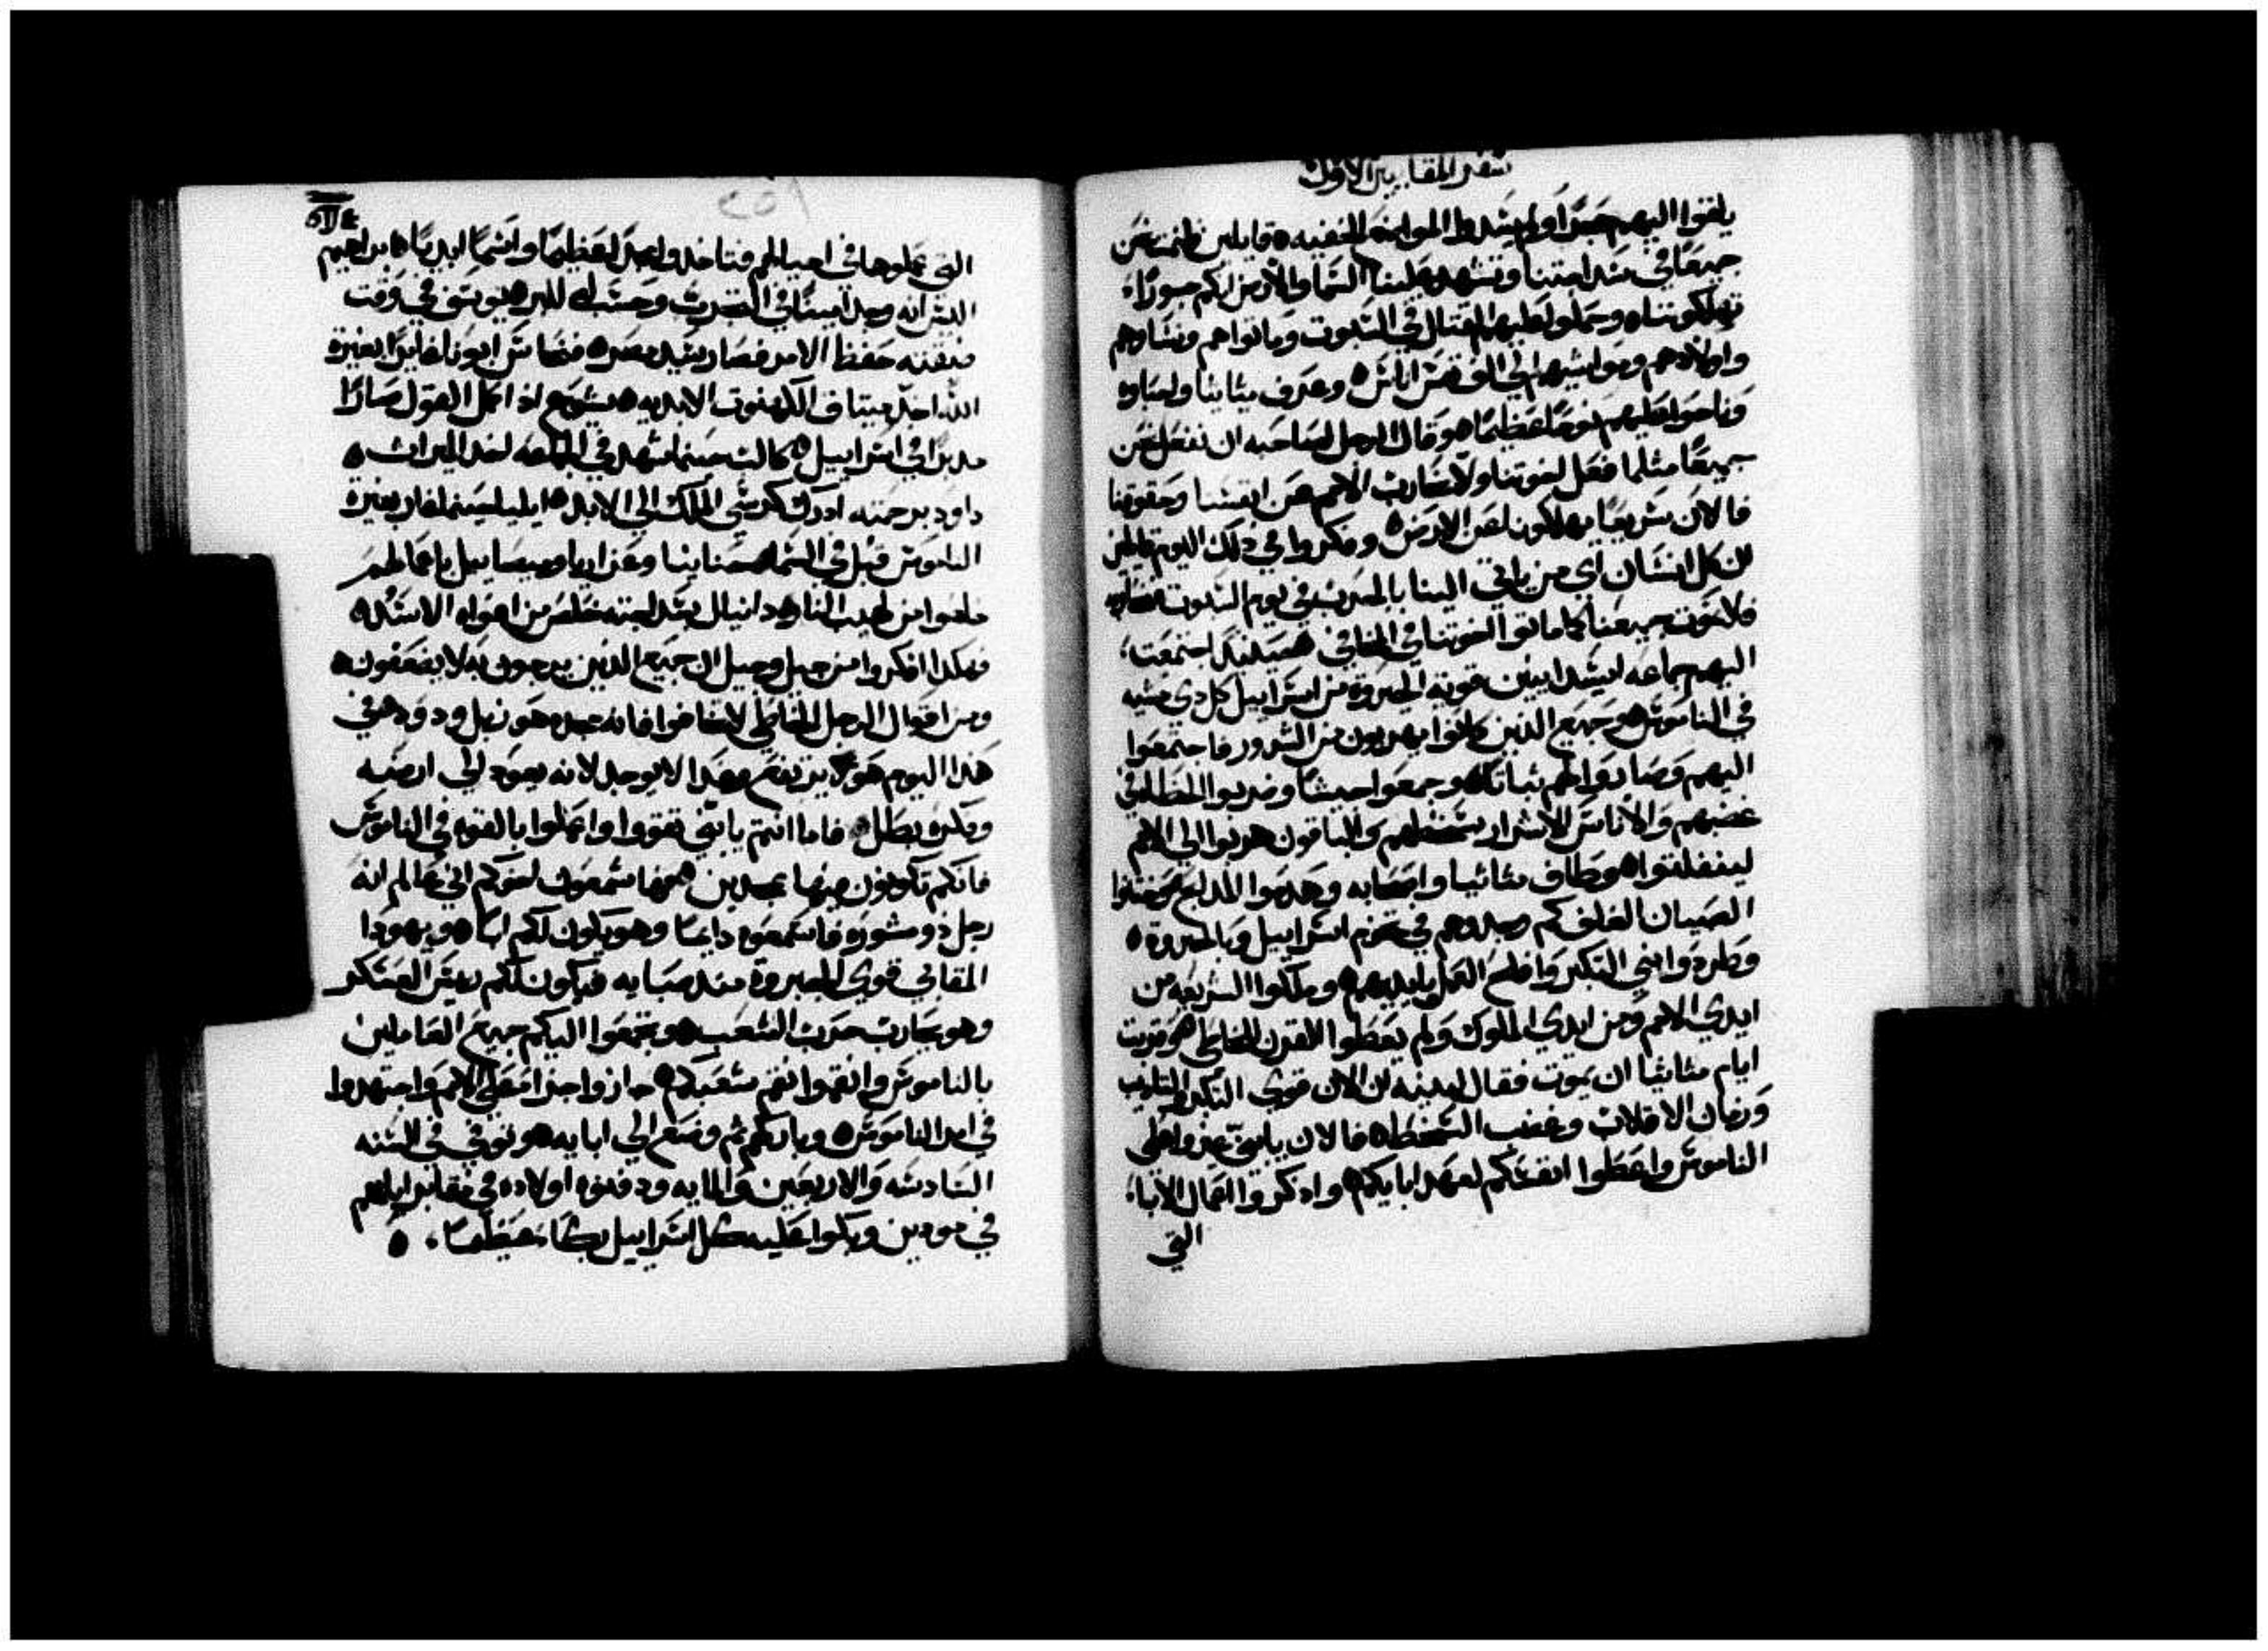 سفر المقابيين الاول
يلقوا اليهم حجرًا ولم يسدوا المواضع الخفيه ٥ قايلين فلنمت نحن
جميعًا في سداجتنا وتشهد علينا السما والارض انكم جورًا
تهلكونا ٥ وحملوا عليهم القتال في السبوت وماتوا هم ونساوهم
واولادهم ومواشيهم الي الف نفس اناس ٥ وعرف متاثيا واحباوه
وناحوا عليهم نوحًا عظيمًا ٥ وقال الرجل لصاحبه ان نفعل نحن
جميعًا مثلما فعل اخوتنا ولا نحارب الامم عن انفسنا وحقوقنا
فالان سريعًا يهلكونا عن الارض ٥ وفكروا في ذلك اليوم قايلين
لان كل انسان اي من ياتي الينا بالحرب في يوم السبوت
فلا نموت جميعنا كما ماتوا اخوتنا في المخافي ٥ حينيذ اجتمعت
اليهم جماعه ايسدايين قوية الجبروة من اسراييل كل دي مشيه
في الناموس ٥ وجميع الذين كانوا يهربون من الشرور فاجتمعوا
اليهم وصاروا لهم ثباتًا ٥ وجمعوا جيشًا وضربوا الخطاه في
غضبهم والاناس الاشرار بسخطهم والباقون هربوا الي الامم
لينفلتوا ٥ وطاف متاثيا واصحابه وهدموا المدابح ٥ وختنوا
الصبيان الغلف كم وجدوهم في تخوم اسراييل وبالجبروة ٥
وطردوا ابني التكبر وافلح العمل بايديهم ٥ وملكوا الشريعه من
ايدي الامم ومن ايدي الملوك ولم يعطوا القرن للخاطي ٥ وقربت
ايام متاثيا ان يموت فقال لبنيه لان الان قوي التكبر والتاديب
وزمان الانقلاب وغضب السخط ٥ فالان يا بني غيروا علي
الناموس واعطوا انفسكم لعهد ابايكم ٥ واذكروا اعمال الابا
التي
التي عملوها في اجيالهم فتاخدوا مجدًا عظيمًا واسمًا ابديًا ٥ ابراهيم
اليس انه وجد امينًا في التجربه وحسب له للبر ٥ يوسف في وقت
ضيقته حفظ الامر فصار سيد مصر ٥ فنحاس ابونا اذ غاير غيرة
الله اخد ميتاق الكهنوت الابديه ٥ يشوع اذ اكمل القول صار
مدبرًا في اسراييل ٥ كالب حينما شهد في الجماعه اخد الميراث ٥
داود برحمته ادرك كرسي الملك الي الابد ٥ ايليا حينما غار بغيرة
الناموس قبل في السما ٥ حنانيا وعزاريا وميصاييل بايمانهم
خلصوا من لهيب النار ٥ دانيال بسداجته خلص من افواه الاسد ٥
فهكدا افكروا من جيل وجيل ان جميع الذين يرجون به لا يضعفون ٥
ومن اقوال الرجل الخاطي لا تخافوا فان مجده هو زبل ودود ٥ في
هذا اليوم هو يرتفع وغدا لا يوجد لانه يعود الي ارضه
وفكره بطل ٥ فاما انتم يا بني تقووا واعملوا بالقوه في الناموس
فانكم تكونون فيها ممجدين ٥ فها سمعون اخوكم اني عالم انه
رجل ذو مشوره فاسمعوه دايما وهو يكون لكم ابًا ٥ ويهودا
المقابي قوي الجبروة مند صبايه فيكون لكم ريس العسكر
وهو يحارب حرب الشعب ٥ وتجمعوا اليكم جميع العاملين
بالناموس وانقموا نقم شعبكم ٥ جازوا جزا معطي الامم واجتهدوا
في امر الناموس ٥ وباركهم ثم وضع الي ابايه ٥ وتوفي في السنه
السادسه والاربعين والمايه ودفنوه اولاده في مقابر ابايهم
في مودين وبكوا عليه كل اسراييل بكاءً عظيمًا ٥